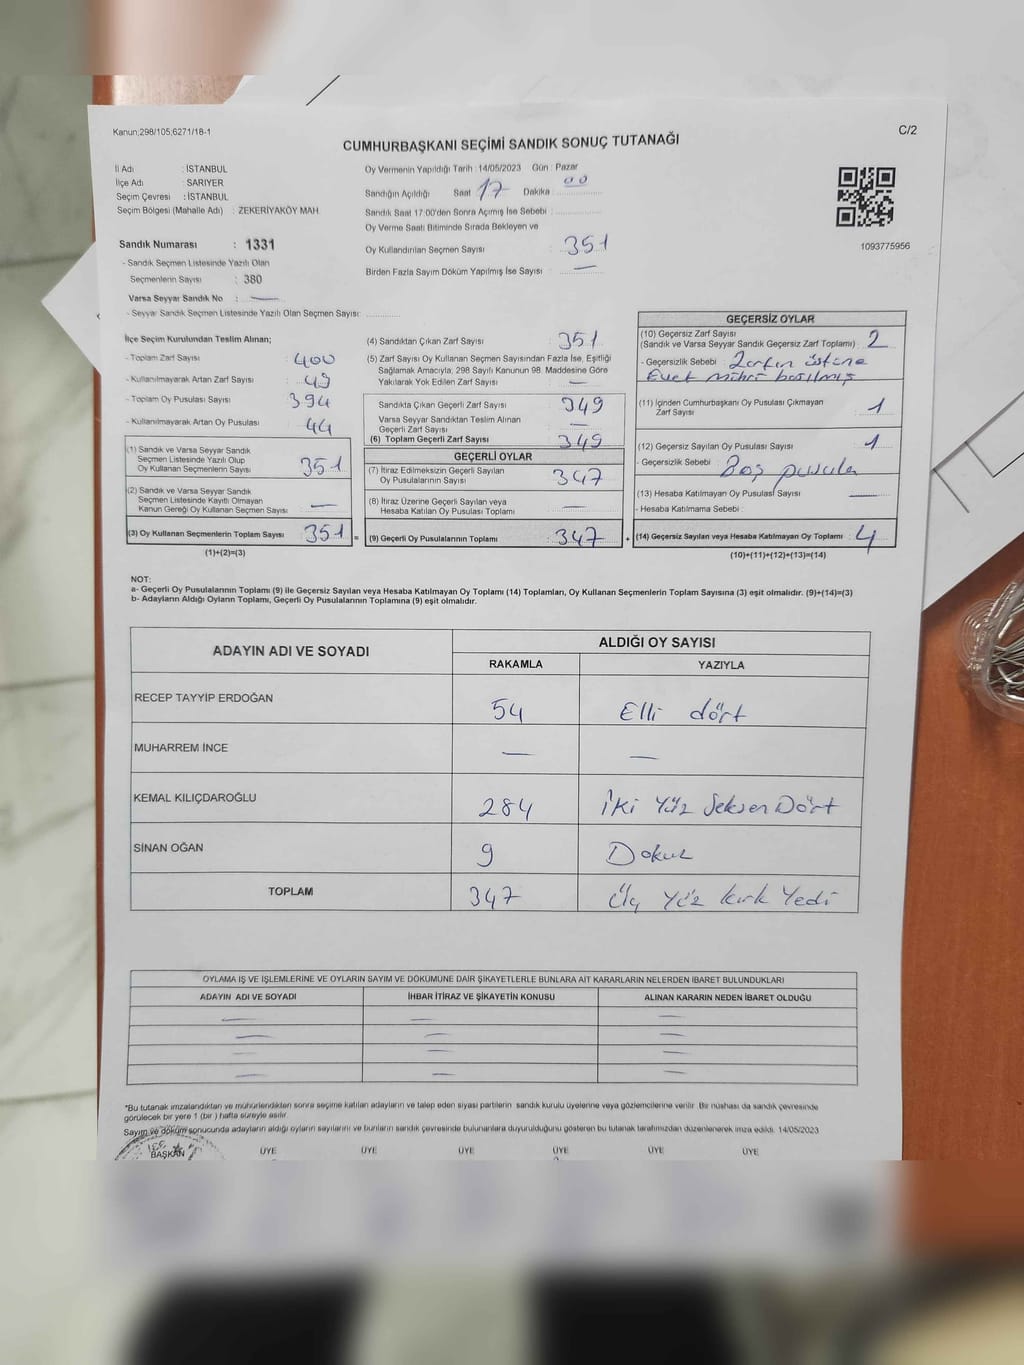 Kanun;298/105,6271/18-1
C/2
CUMHURBAŞKANI SEÇİMİ SANDIK SONUÇ TUTANAĞI
İl Adı : İSTANBUL
İlçe Adı : SARIYER
Seçim Çevresi : İSTANBUL
Seçim Bölgesi (Mahalle Adı) : ZEKERİYAKÖY MAH
Sandık Numarası : 1331
- Sandık Seçmen Listesinde Yazılı Olan
Seçmenlerin Sayısı : 380
Varsa Seyyar Sandık No : —
- Seyyar Sandık Seçmen Listesinde Yazılı Olan Seçmen Sayısı:
Oy Vermenin Yapıldığı Tarih : 14/05/2023 Gün : Pazar
Sandığın Açıldığı Saat 17 Dakika : 00
Sandık Saat 17:00'den Sonra Açımış İse Sebebi :
Oy Verme Saati Bitiminde Sırada Bekleyen ve
Oy Kullandırılan Seçmen Sayısı : 351
Birden Fazla Sayım Döküm Yapılmış İse Sayısı : —
1093775956
İlçe Seçim Kurulundan Teslim Alınan;
- Toplam Zarf Sayısı : 400
- Kullanılmayarak Artan Zarf Sayısı : 49
- Toplam Oy Pusulası Sayısı : 394
- Kullanılmayarak Artan Oy Pusulası : 44
(1) Sandık ve Varsa Seyyar Sandık
Seçmen Listesinde Yazılı Olup
Oy Kullanan Seçmenlerin Sayısı : 351
(2) Sandık ve Varsa Seyyar Sandık
Seçmen Listesinde Kayıtlı Olmayan
Kanun Gereği Oy Kullanan Seçmen Sayısı : —
(3) Oy Kullanan Seçmenlerin Toplam Sayısı : 351 =
(1)+(2)=(3)
(4) Sandıktan Çıkan Zarf Sayısı : 351
(5) Zarf Sayısı Oy Kullanan Seçmen Sayısından Fazla İse, Eşitliği
Sağlamak Amacıyla, 298 Sayılı Kanunun 98. Maddesine Göre
Yakılarak Yok Edilen Zarf Sayısı : —
Sandıkta Çıkan Geçerli Zarf Sayısı : 349
Varsa Seyyar Sandıktan Teslim Alınan
Geçerli Zarf Sayısı : —
(6) Toplam Geçerli Zarf Sayısı : 349
GEÇERLİ OYLAR
(7) İtiraz Edilmeksizin Geçerli Sayılan
Oy Pusulalarının Sayısı : 347
(8) İtiraz Üzerine Geçerli Sayılan veya
Hesaba Katılan Oy Pusulası Toplamı : —
(9) Geçerli Oy Pusulalarının Toplamı : 347 +
GEÇERSİZ OYLAR
(10) Geçersiz Zarf Sayısı
(Sandık ve Varsa Seyyar Sandık Geçersiz Zarf Toplamı) : 2
- Geçersizlik Sebebi : Zarfın üstüne
Evet mührü basılmış
(11) İçinden Cumhurbaşkanı Oy Pusulası Çıkmayan
Zarf Sayısı : 1
(12) Geçersiz Sayılan Oy Pusulası Sayısı : 1
- Geçersizlik Sebebi : Boş pusula
(13) Hesaba Katılmayan Oy Pusulası Sayısı : —
- Hesaba Katılmama Sebebi :
(14) Geçersiz Sayılan veya Hesaba Katılmayan Oy Toplamı : 4
(10)+(11)+(12)+(13)=(14)
NOT:
a- Geçerli Oy Pusulalarının Toplamı (9) ile Geçersiz Sayılan veya Hesaba Katılmayan Oy Toplamı (14) Toplamları, Oy Kullanan Seçmenlerin Toplam Sayısına (3) eşit olmalıdır. (9)+(14)=(3)
b- Adayların Aldığı Oyların Toplamı, Geçerli Oy Pusulalarının Toplamına (9) eşit olmalıdır.
ADAYIN ADI VE SOYADI
ALDIĞI OY SAYISI
RAKAMLA YAZIYLA
RECEP TAYYİP ERDOĞAN 54 Elli dört
MUHARREM İNCE — —
KEMAL KILIÇDAROĞLU 284 İki Yüz Seksen Dört
SİNAN OĞAN 9 Dokuz
TOPLAM 347 Üç Yüz kırk Yedi
OYLAMA İŞ VE İŞLEMLERİNE VE OYLARIN SAYIM VE DÖKÜMÜNE DAİR ŞİKAYETLERLE BUNLARA AİT KARARLARIN NELERDEN İBARET BULUNDUKLARI
ADAYIN ADI VE SOYADI İHBAR İTİRAZ VE ŞİKAYETİN KONUSU ALINAN KARARIN NEDEN İBARET OLDUĞU
— — —
— — —
— — —
— — —
*Bu tutanak imzalandıktan ve mühürlendikten sonra seçime katılan adayların ve talep eden siyasi partilerin sandık kurulu üyelerine veya gözlemcilerine verilir. Bir nüshası da sandık çevresinde
görülecek bir yere 1 (bir ) hafta süreyle asılır.
Sayım ve döküm sonucunda adayların aldığı oyların sayılarını ve bunların sandık çevresinde bulunanlara duyurulduğunu gösteren bu tutanak tarafımızdan düzenlenerek imza edildi. 14/05/2023
BAŞKAN ÜYE ÜYE ÜYE ÜYE ÜYE ÜYE